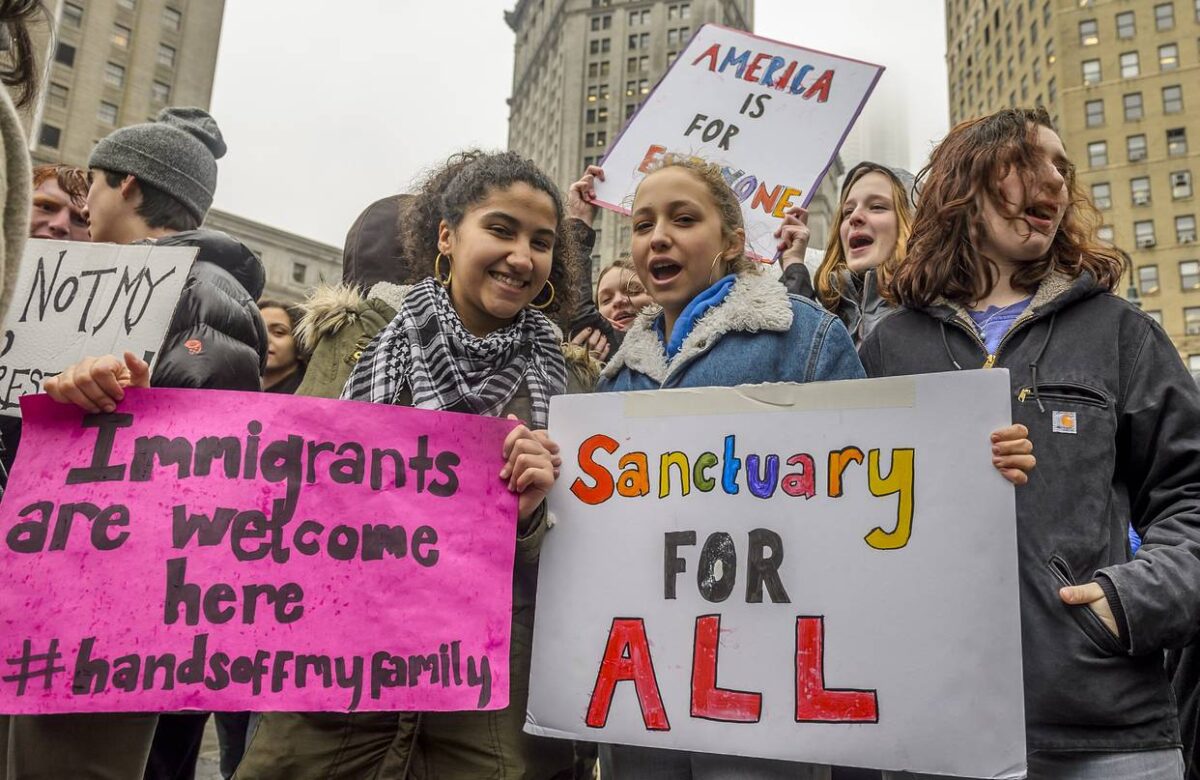 AMERICA
IS
FOR
EVERYONE
NOT MY
Immigrants
are welcome
here
#handsoffmyfamily
Sanctuary
FOR
ALL
carhartt